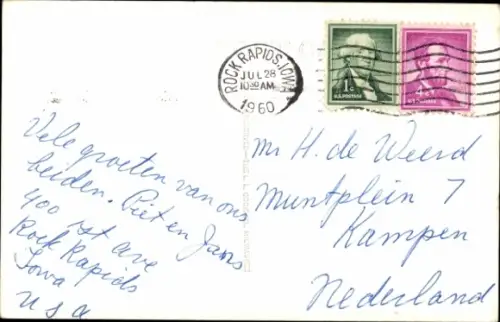 ROCK RAPIDS, IOWA
JUL 28
10:30 AM
1960
1¢
U.S. POSTAGE
4¢
U.S. POSTAGE
Vele groeten van ons
beiden. Piet en Jans
400 1st ave
Rock Rapids
Iowa
USA
Mr H. de Weerd
Muntplein 7
Kampen
Nederland